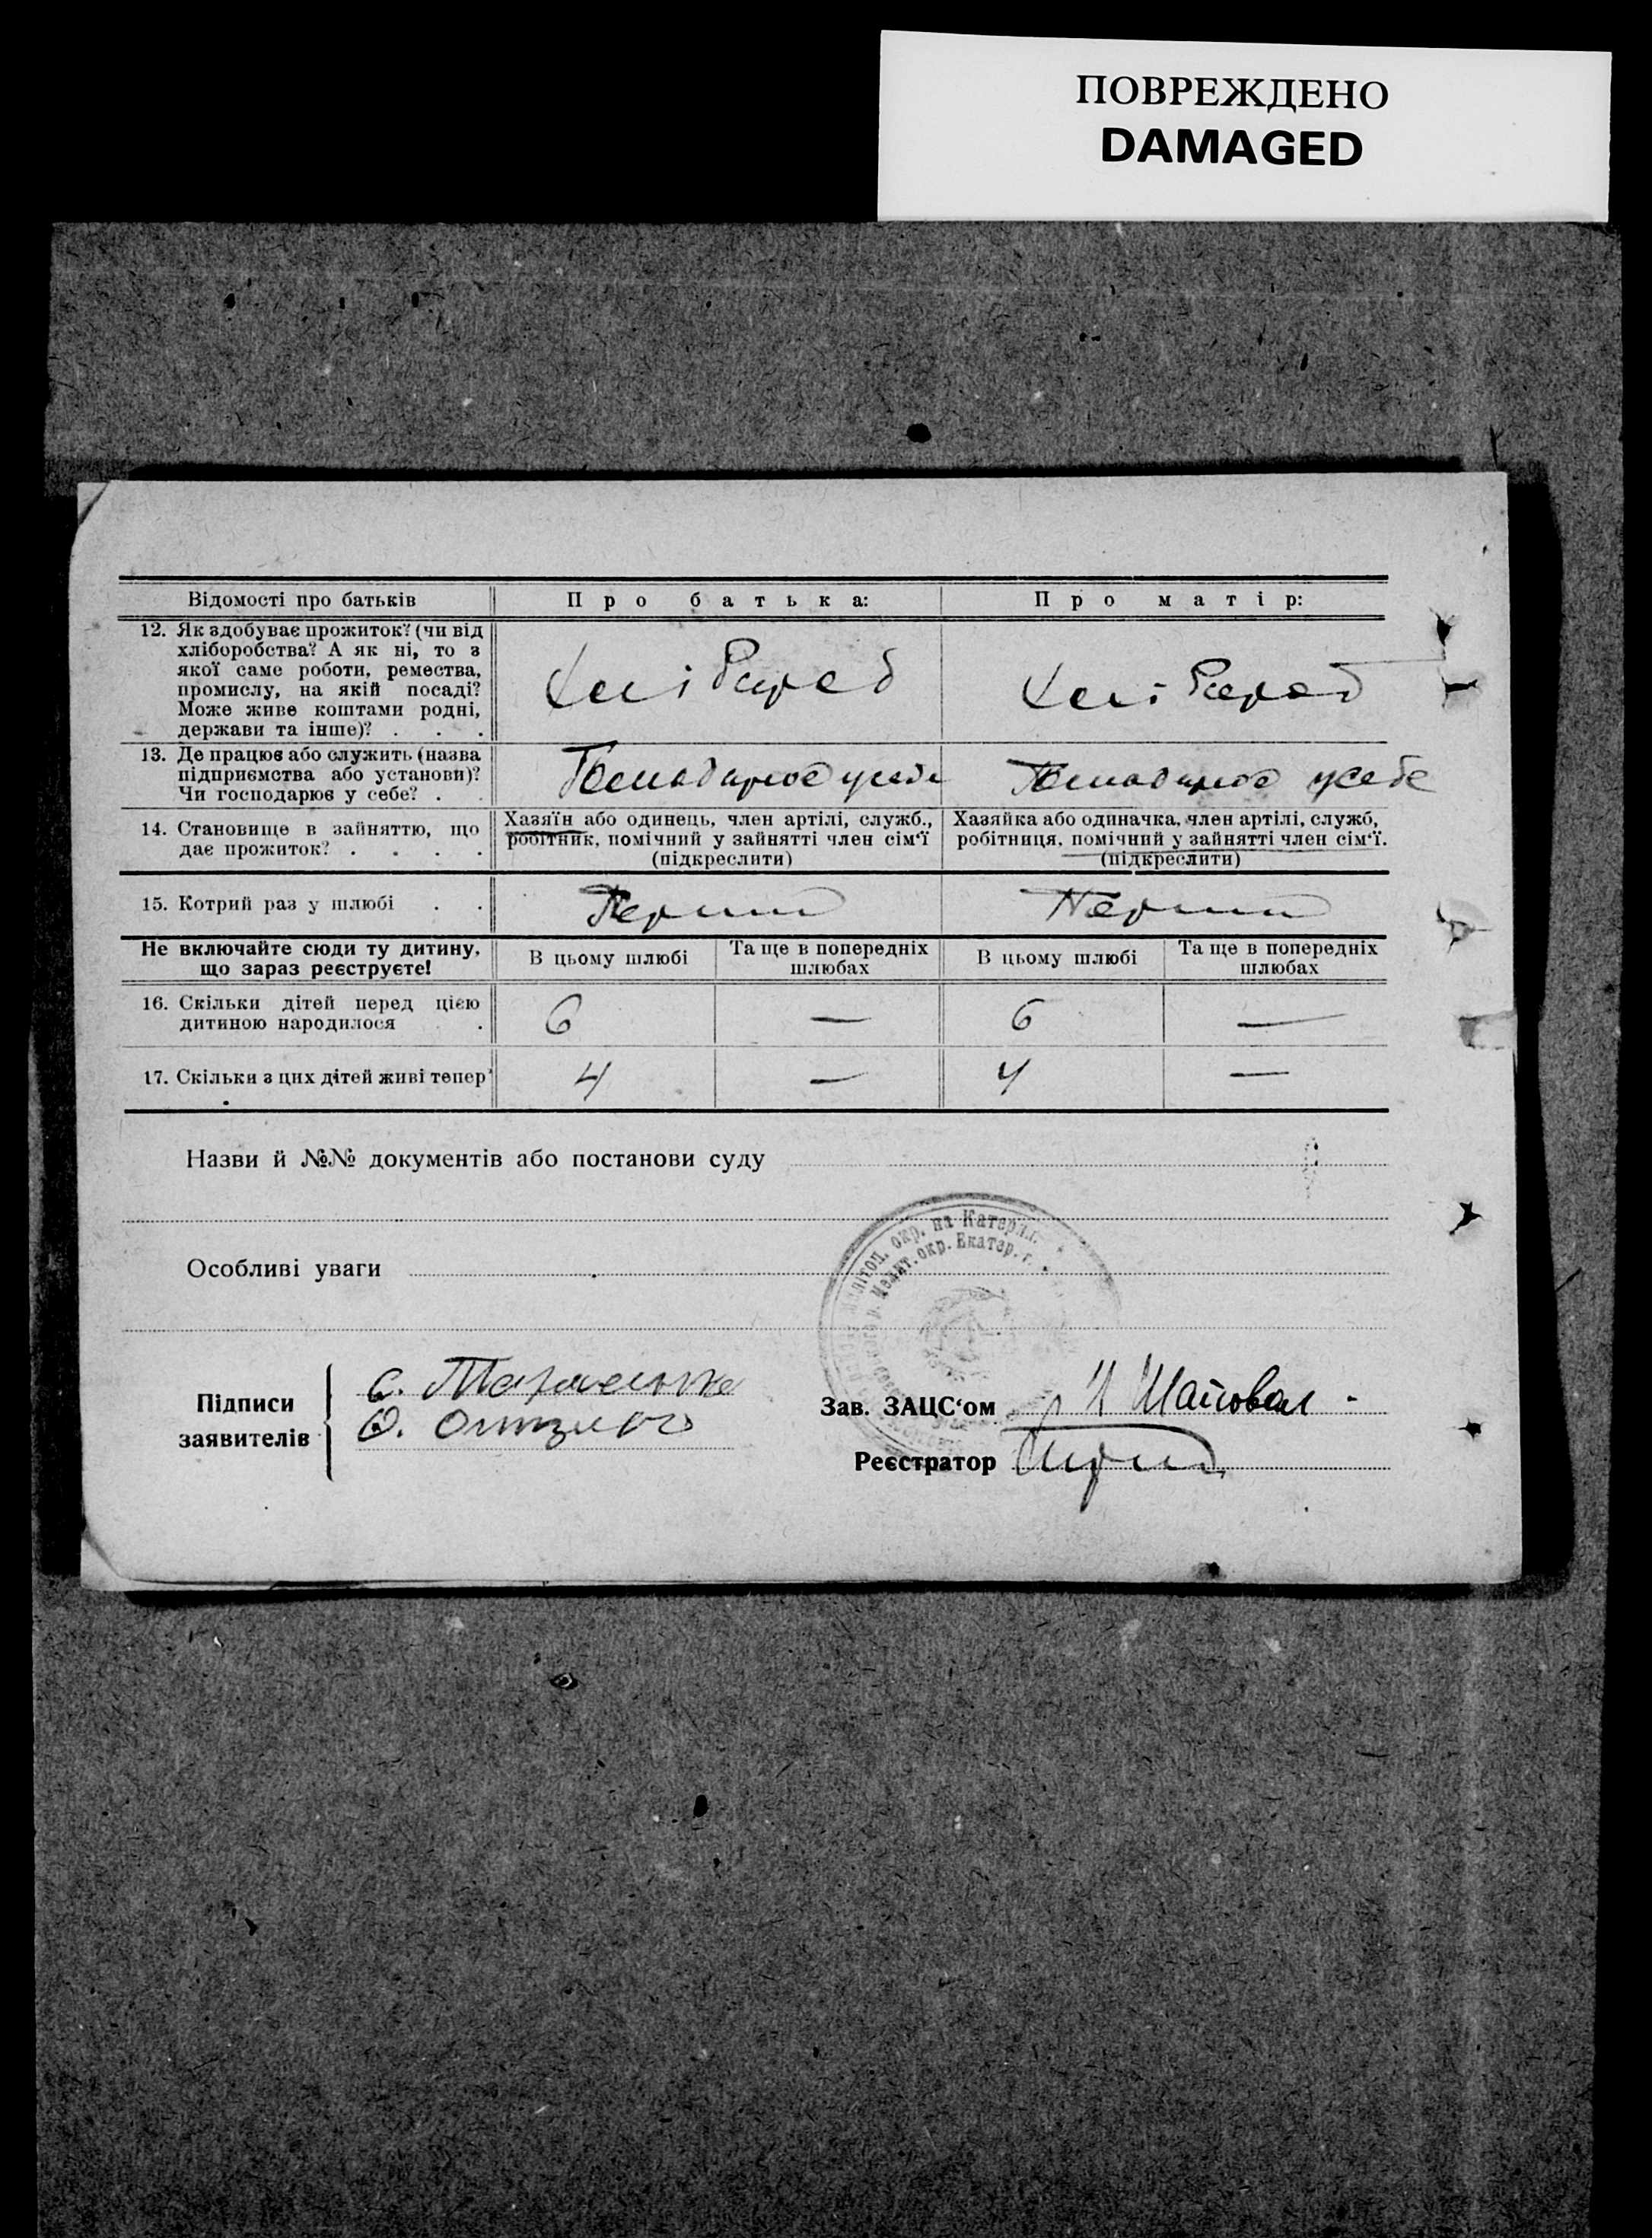 ПОВРЕЖДЕНО
DAMAGED
Відомості про батьків
Про батька:
Про матір:
12. Як здобуває прожиток? (чи від
хліборобства? А як ні, то з
якої саме роботи, ремества,
промислу, на якій посаді?
Може живе коштами родні,
держави та інше)? . . .
Хлібороб
Хлібороб
13. Де працює або служить (назва
підприємства або установи)?
Чи господарює у себе? . .
Господарює у себе
Господарює у себе
14. Становище в зайняттю, що
дає прожиток? . . . .
Хазяїн або одинець, член артілі, служб.,
робітник, помічний у зайнятті член сім'ї
(підкреслити)
Хазяйка або одиначка, член артілі, служб,
робітниця, помічний у зайнятті член сім'ї.
(підкреслити)
15. Котрий раз у шлюбі . .
Перший
Перший
Не включайте сюди ту дитину,
що зараз реєструєте!
В цьому шлюбі
Та ще в попередніх
шлюбах
В цьому шлюбі
Та ще в попередніх
шлюбах
16. Скільки дітей перед цією
дитиною народилося .
6
—
6
—
17. Скільки з цих дітей живі тепер
4
—
4
—
Назви й №№ документів або постанови суду
окр. на Катерин.
Мелит. окр. Екатер. г.
Особливі уваги
Підписи
заявителів
С. Тараненко
О.
Зав. ЗАЦС'ом
Шаповал
Реєстратор